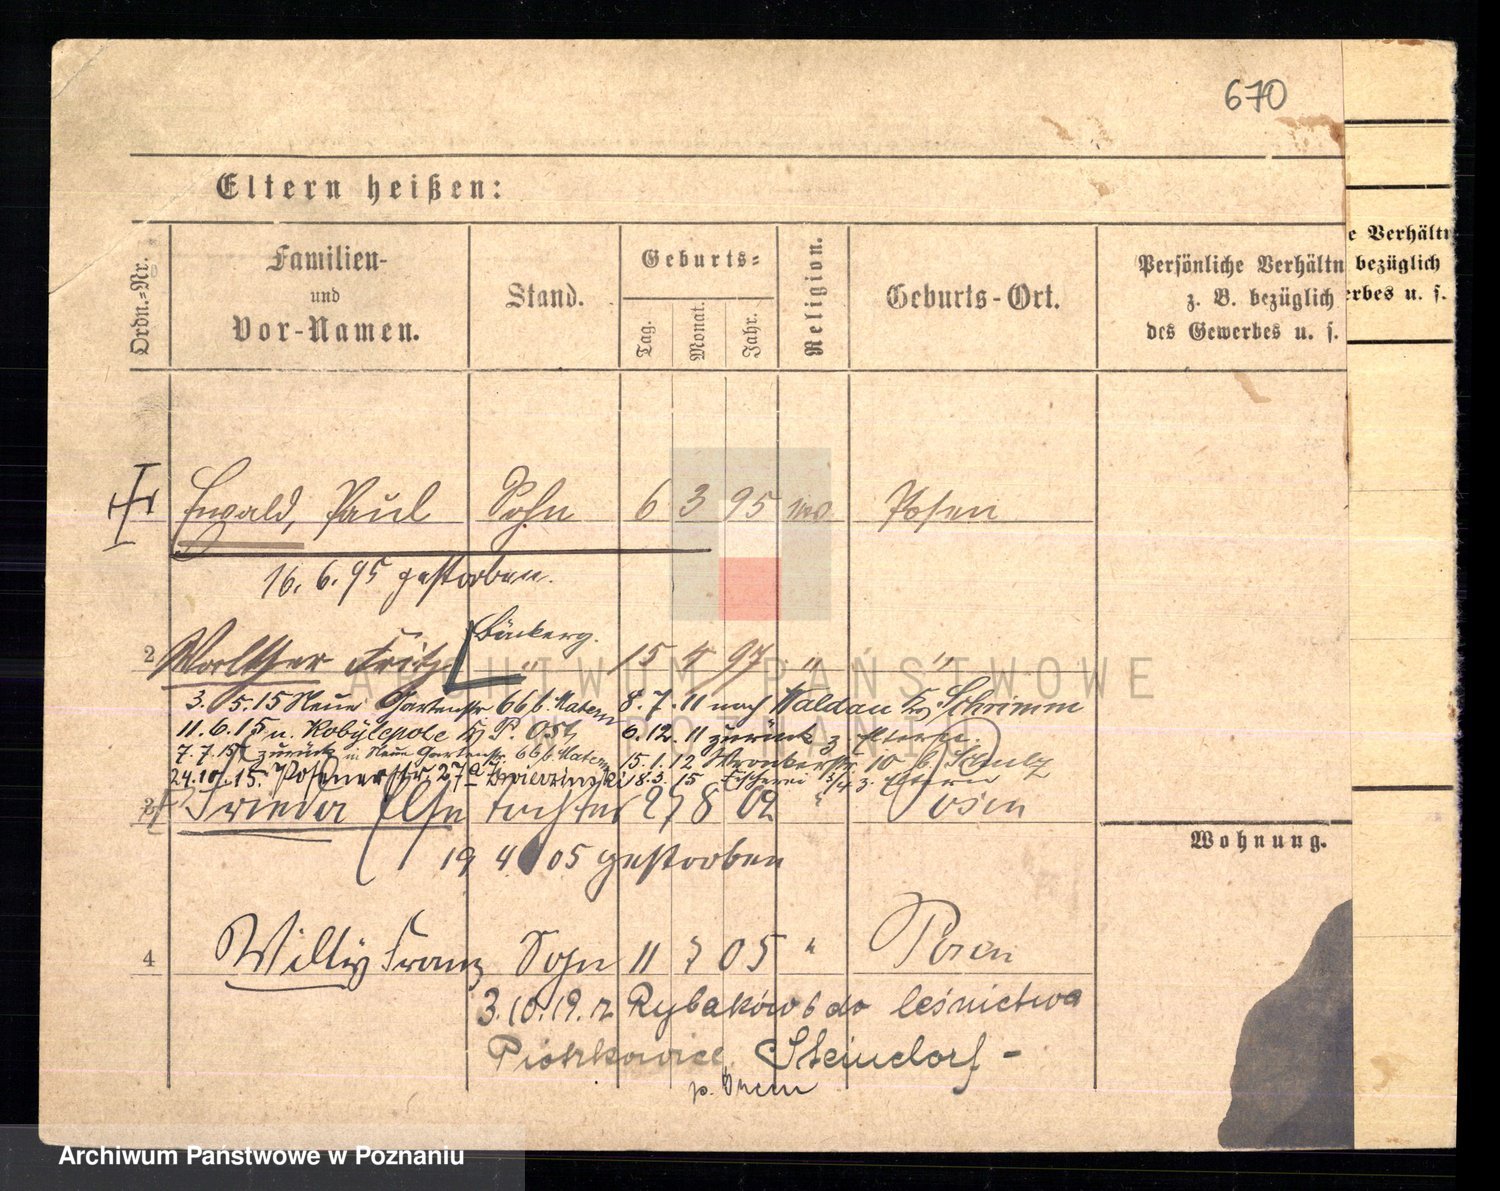 670
Eltern heißen:
Ordn.=Nr.
Familien-
und
Vor-Namen.
Stand.
Geburts=
Tag.
Monat.
Jahr.
Religion.
Geburts-Ort.
Persönliche Verhältn
z. B. bezüglich
des Gewerbes u. s.
e Verhältn
bezüglich
erbes u. s.
Ewald, Paul Sohn 6 3 95 Posen
16. 6. 95 gestorben.
Bäckerg.
2 Walther Fritz " 15 4 97 " "
3. 5. 15 Neue Gartenstr 66 b. Matern 8. 7. 11 nach Waldau Schrimm
11. 6. 15 n. Kobylepole 6. 12. 11 zurück z. Eltern.
7. 7. 15 zurück in Neue Gartenstr. 66 b. Matern 15. 1. 12 Wronkerstr 10 b. Schulz
24. 10. 15. Posenerstr. 27a 18. 3. 15 Fischerei 3/4 z. Eltern
3 Frieda Else Tochter 27 8 02 " Posen
19 4 05 gestorben
Wohnung.
4 Willy Franz Sohn 11 7 05 " Posen
3. 10. 19. z Rybaków 6 do leśnictwa
Piotrkowice Steindorf -
p. Śrem
ARCHIWUM PAŃSTWOWE
W POZNANIU
Archiwum Państwowe w Poznaniu